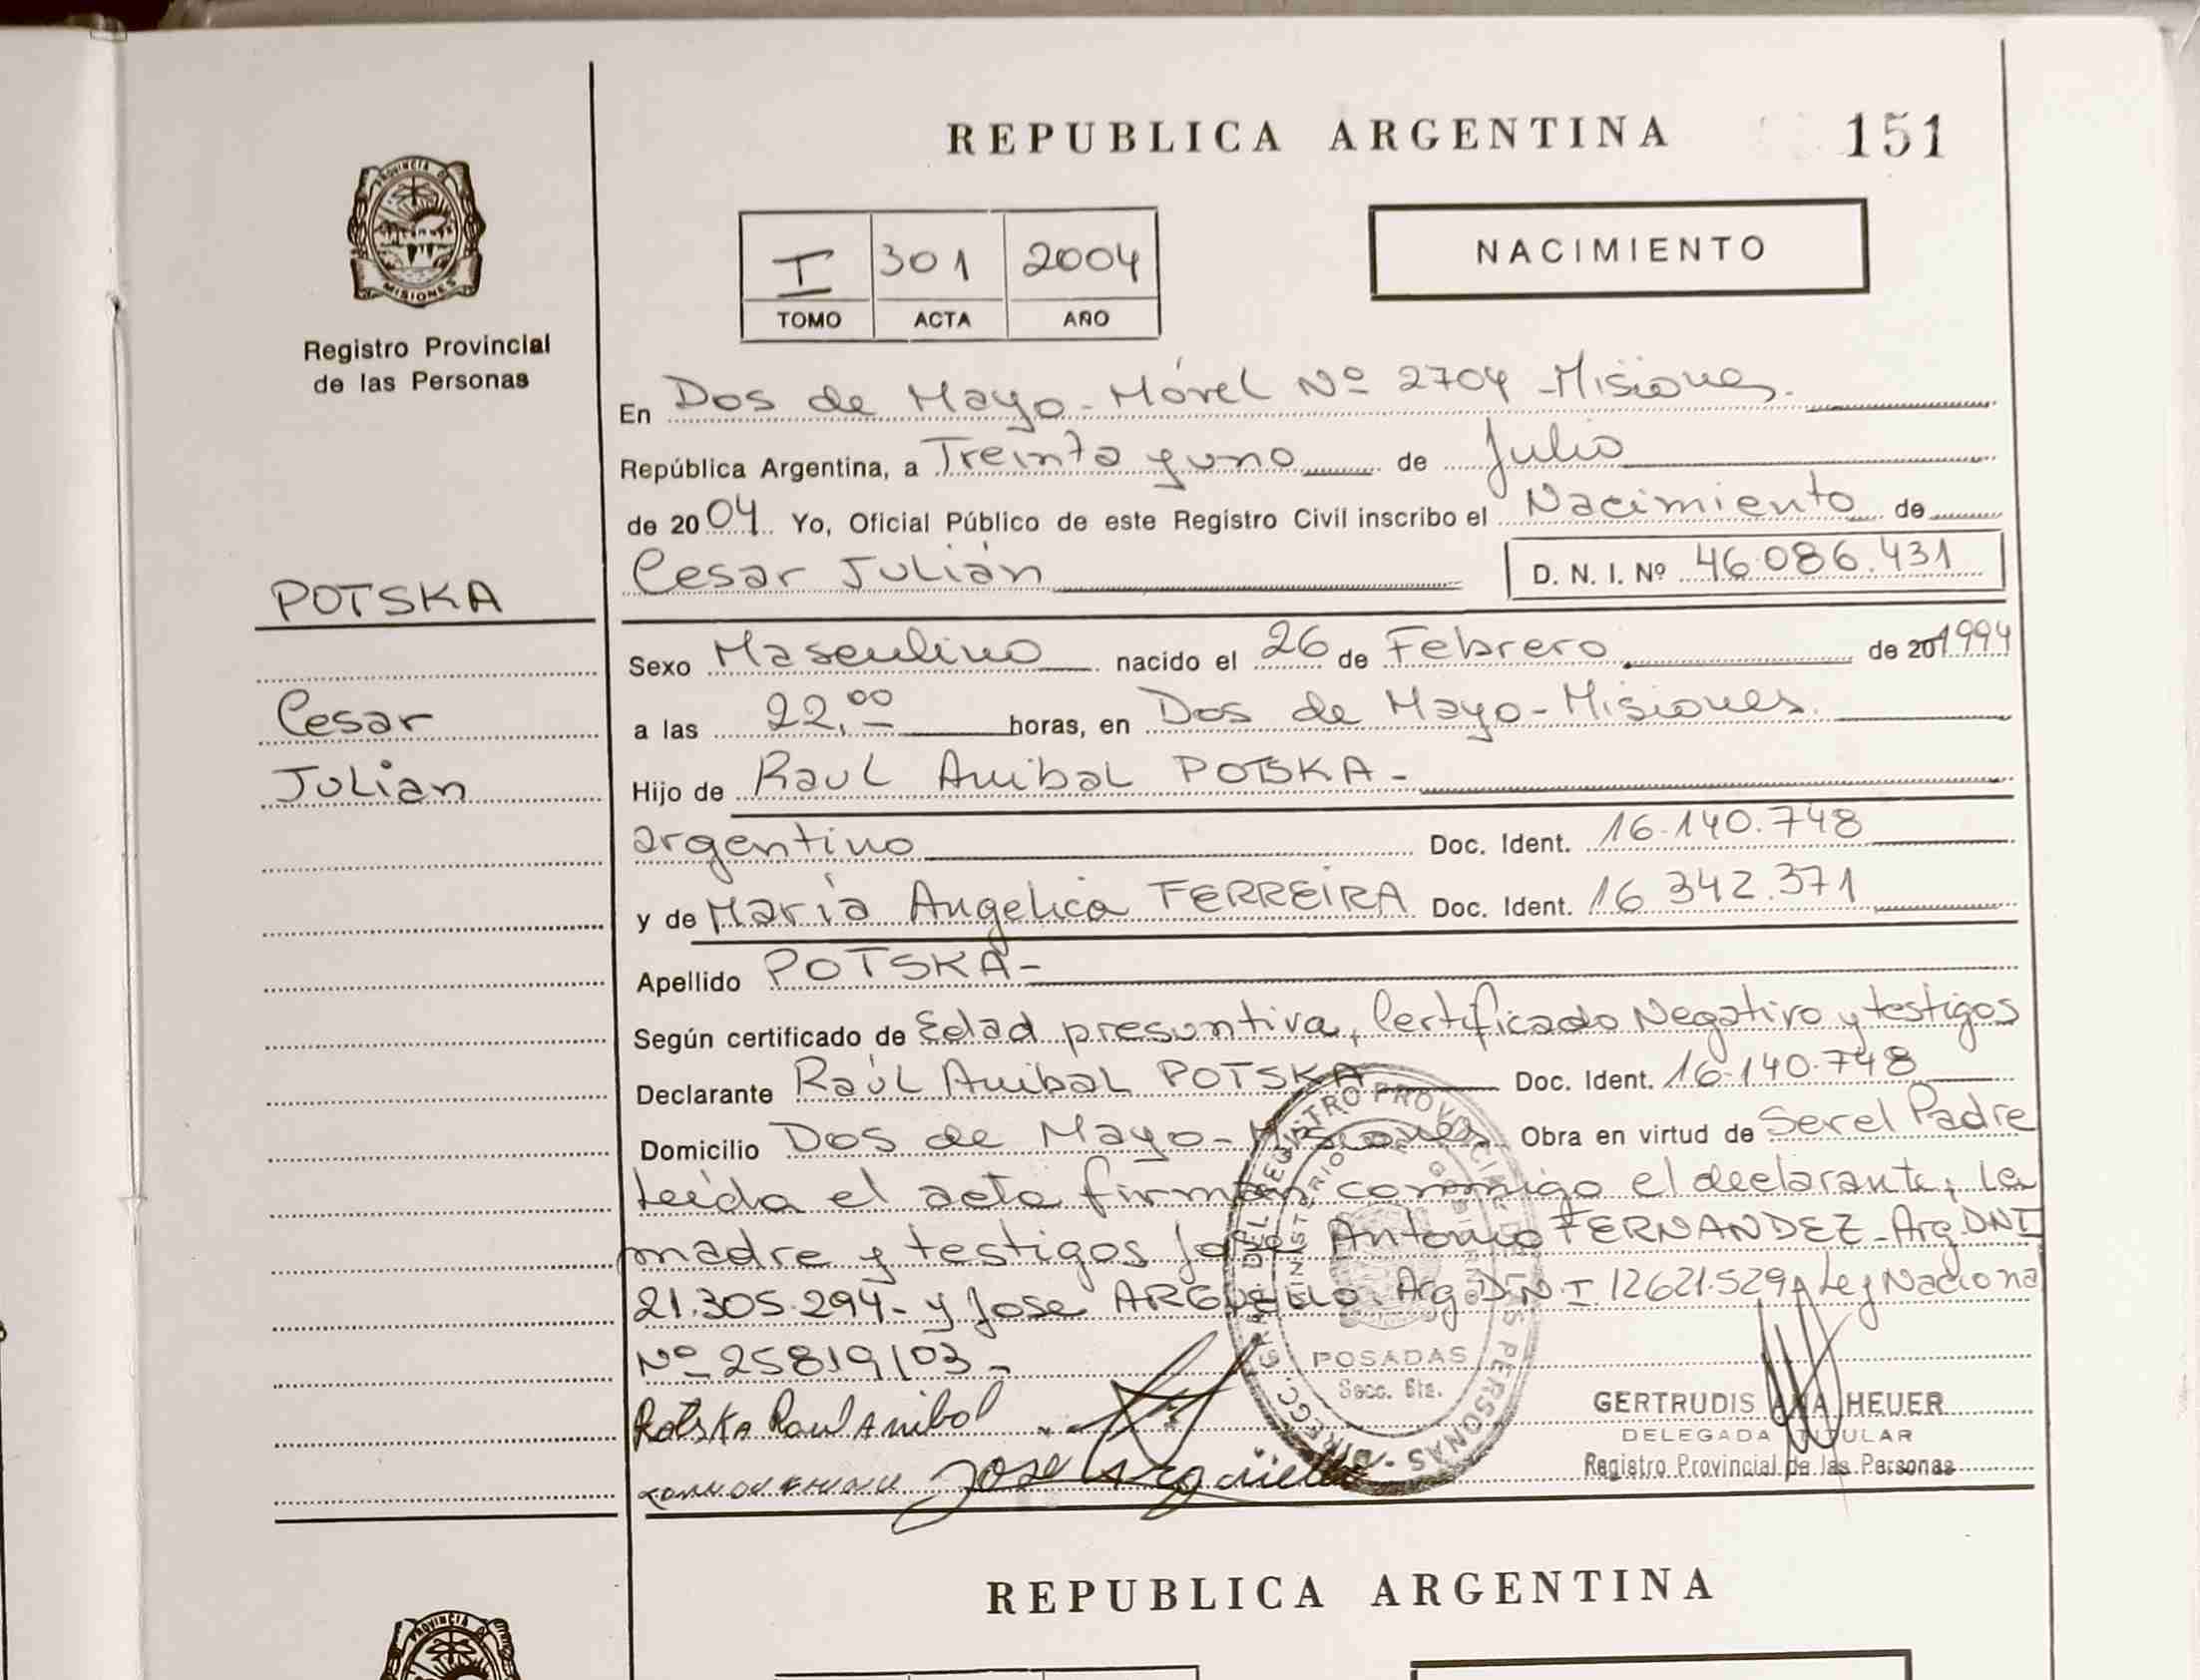 REPUBLICA ARGENTINA 151
PROVINCIA DE
MISIONES
Registro Provincial
de las Personas
I 301 2004
TOMO ACTA AÑO
NACIMIENTO
En Dos de Mayo - Móvel Nº 2704 - Misiones.
República Argentina, a Treinta y uno de Julio
de 2004 Yo, Oficial Público de este Registro Civil inscribo el Nacimiento de
Cesar Julián D. N. I. Nº 46.086.431
POTSKA
Cesar
Julian
Sexo Masculino nacido el 26 de Febrero de 201994
a las 22,00 horas, en Dos de Mayo - Misiones.
Hijo de Raul Anibal POTSKA -
argentino Doc. Ident. 16.140.748
y de María Angelica FERREIRA Doc. Ident. 16 342.371
Apellido POTSKA -
Según certificado de Edad presuntiva, Certificado Negativo y testigos
Declarante Raúl Anibal POTSKA Doc. Ident. 16.140.748
Domicilio Dos de Mayo - Misiones Obra en virtud de Ser el Padre
Leída el acta firman conmigo el declarante, la
madre y testigos José Antonio FERNANDEZ - Arg. DNI
21.305.294 - y Jose ARGUELLO. Arg D.N.I. 12621.529 Ley Naciona
Nº 25819/03 -
Potska Raul Anibal
Jose Arguello
DIRECC. GRAL. DEL REGISTRO PROVINCIAL DE LAS PERSONAS
MINISTERIO DE GOBIERNO
POSADAS
Secc. 6ta.
GERTRUDIS ANA HEUER
DELEGADA TITULAR
Registro Provincial de las Personas
REPUBLICA ARGENTINA
PROVINCIA